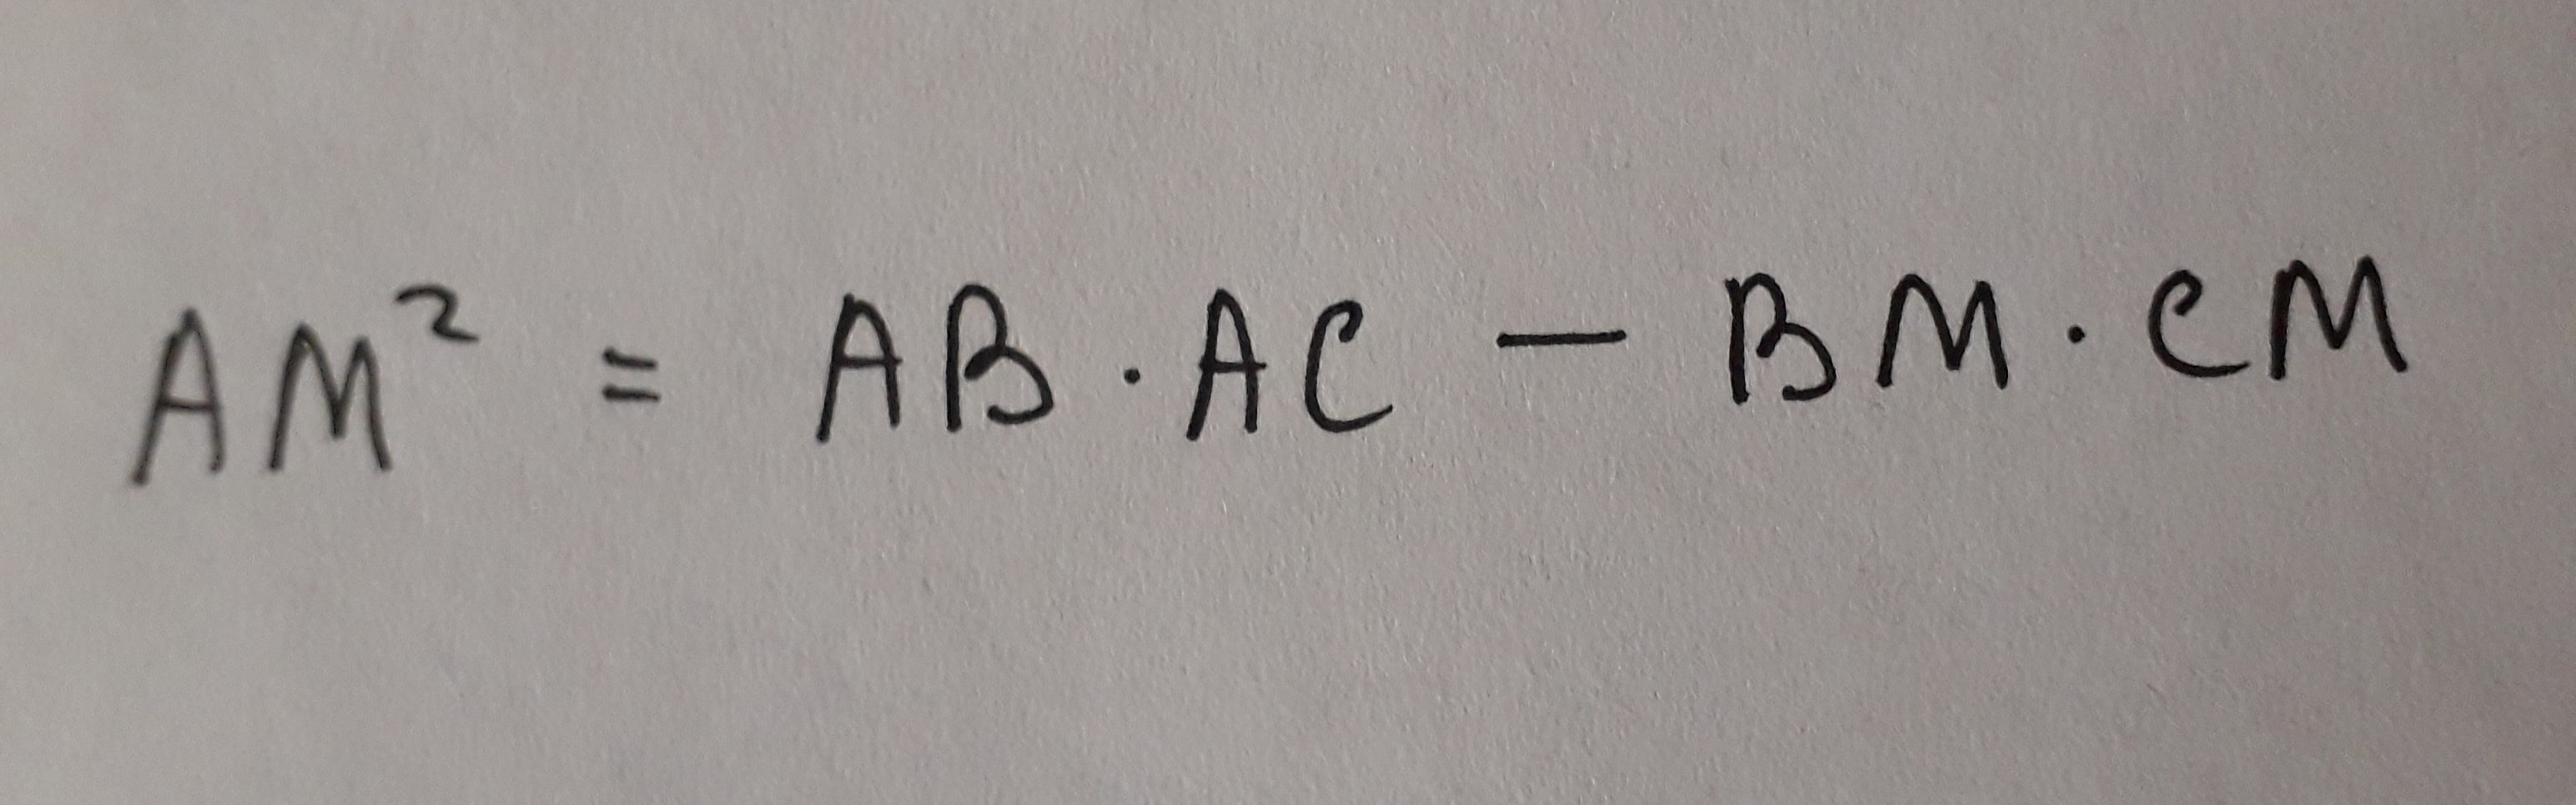 AM² = AB · AC − BM · CM